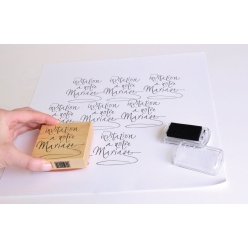 invitation
a notre
Mariage
invitation
a notre
Mariage
invitation
a notre
Mariage
invitation
a notre
Mariage
invitation
a notre
Mariage
invitation
a notre
Mariage
invitation
a notre
Mariage
invitation
a notre
Mariage
invitation
a notre
Mariage